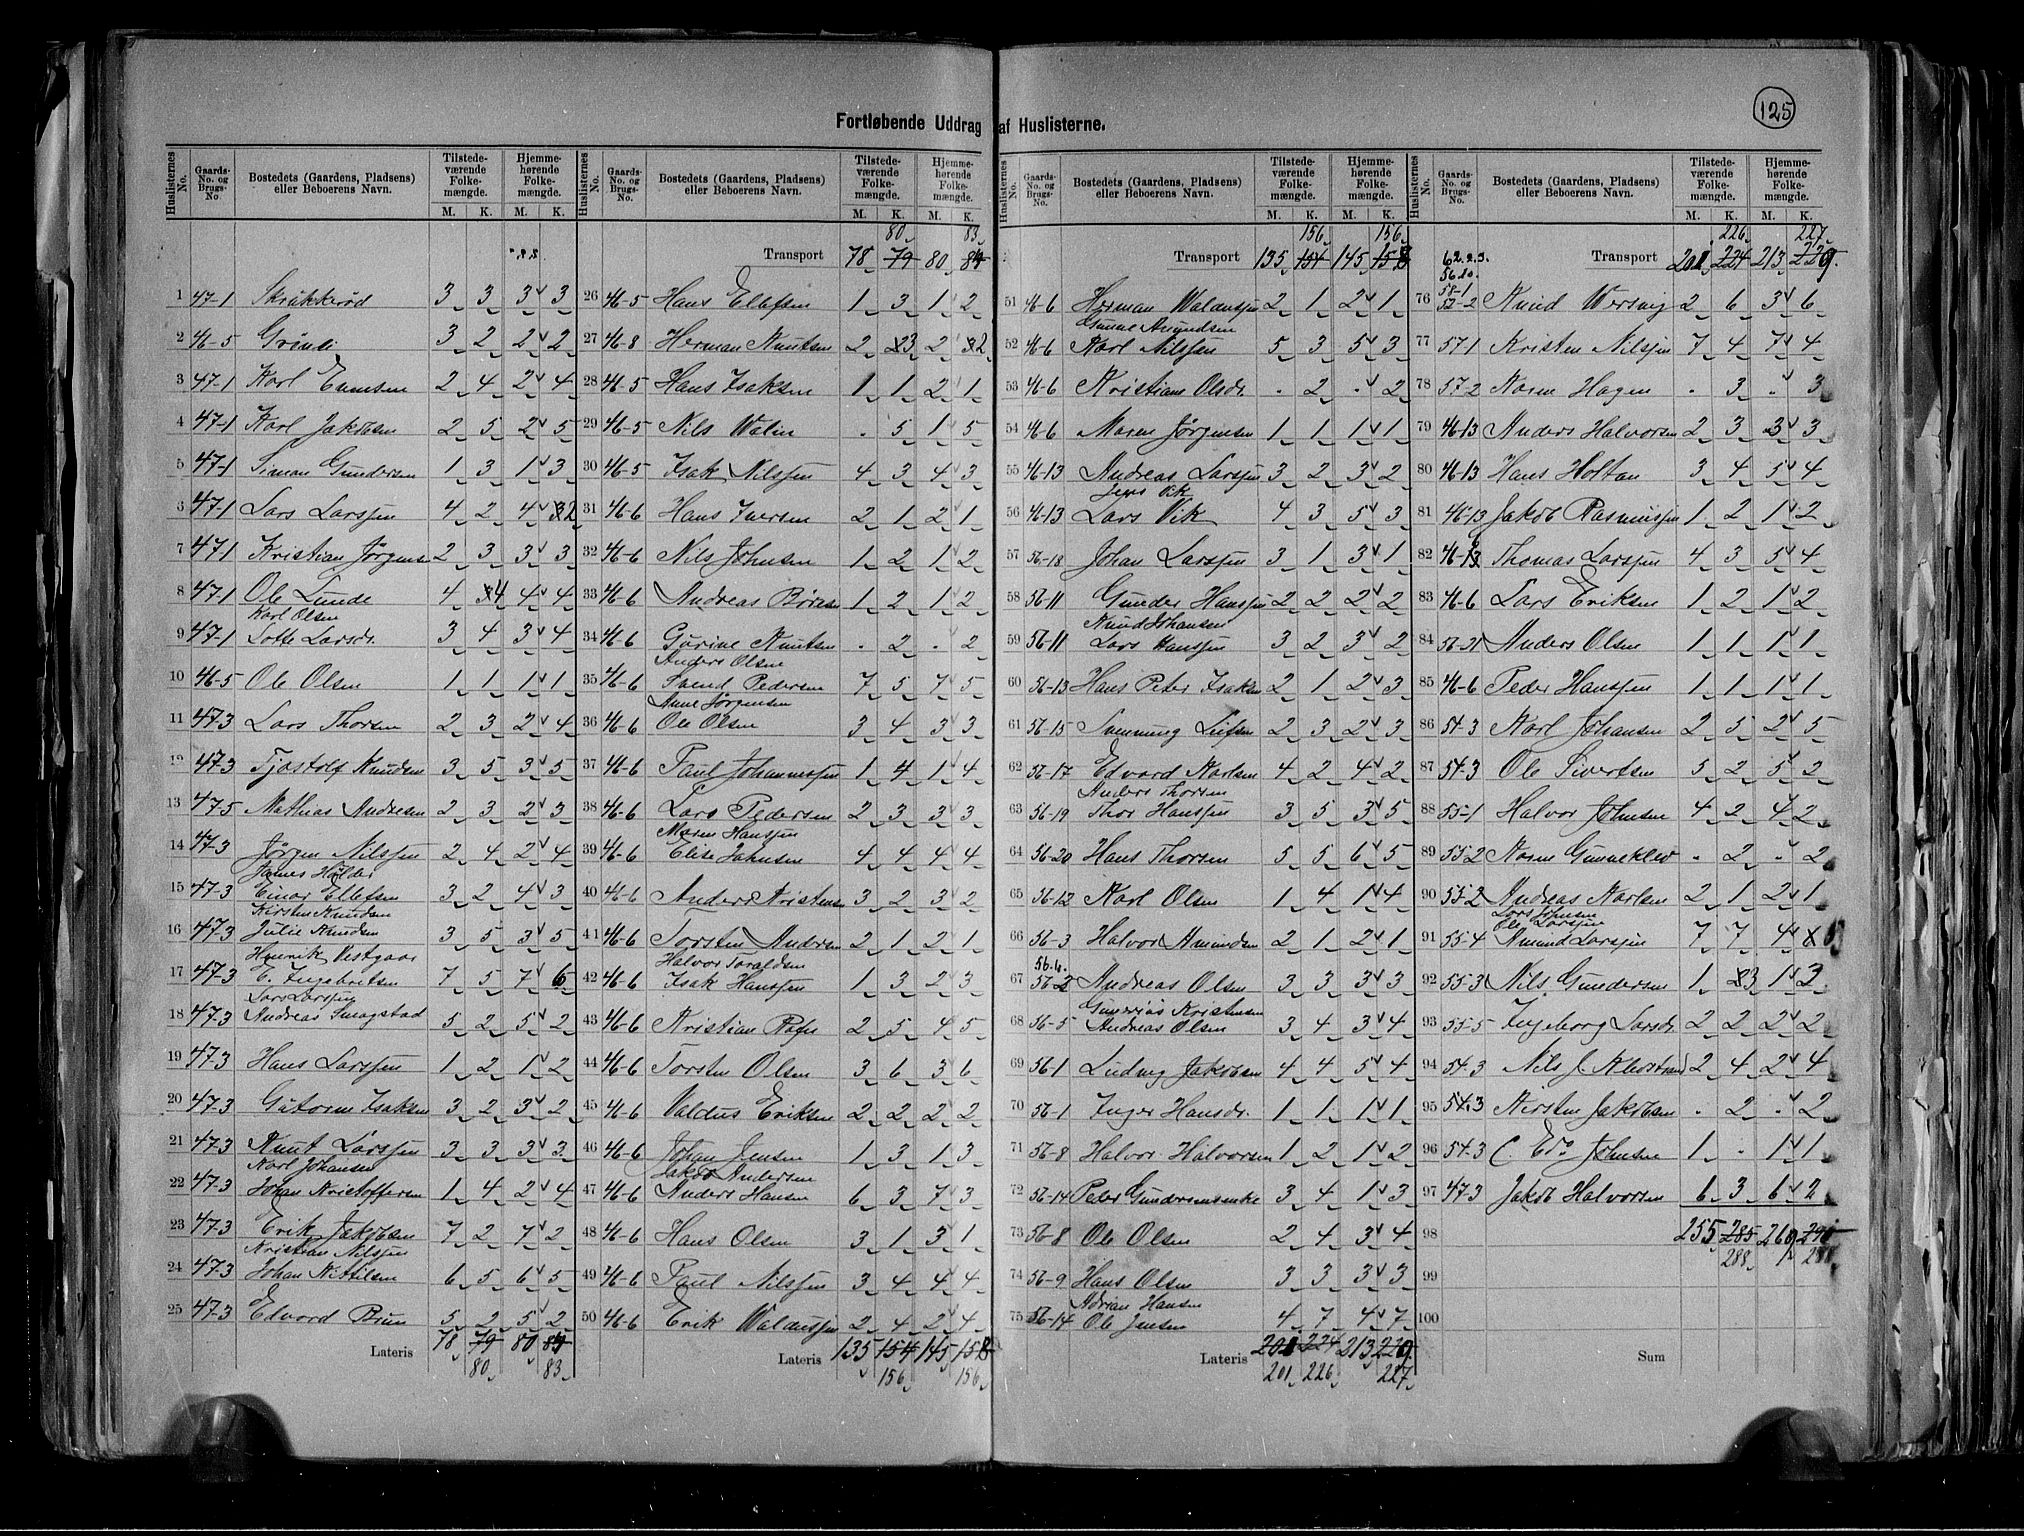 125
Fortløbende Uddrag af Huslisterne.
Huslisternes No. Gaards-No. og Brugs-No. Bostedets (Gaardens, Pladsens) eller Beboerens Navn. Tilstede-værende Folke-mængde. M. K. Hjemme-hørende Folke-mængde. M. K.
1 47-1 3 3 3 3
2 46-5 3 2 2 2
3 47-1 Karl 2 4 2 4
4 47-1 Karl Jakobsen 2 5 2 5
5 47-1 Simon Gundersen 1 3 1 3
6 47-1 Lars Larssen 4 2 4 2
7 47-1 Kristian Jørgensen 2 3 3 3
8 47-1 Ole Lunde 4 4 4 4
Karl Olsen
9 47-1 Lotte Larsdr. 3 4 3 4
10 46-5 Ole Olsen 1 1 1 1
11 47-3 Lars Thorsen 2 3 2 4
12 47-3 Tjøstolf Knudsen 3 5 3 5
13 47-5 Mathias Andresen 2 3 2 3
14 47-3 Jørgen Nilssen 2 4 2 4
James Holder
15 47-3 Einar Ellefsen 3 2 4 3
Kirsten Knudsen
16 47-3 Julie Knudsen 3 5 3 5
Henrik Vestgaar
17 47-3 E. Ingebretsen 7 5 7 6
Lars Larssen
18 47-3 Andreas Smagstad 5 2 5 2
19 47-3 Hans Larssen 1 2 1 2
20 47-3 Gutorm Isaksen 3 2 3 2
21 47-3 Knut Larssen 3 3 3 3
Karl Johansen
22 47-3 Johan Kristoffersen 1 4 2 4
23 47-3 Erik Jakobsen 7 2 7 2
Kristian Nilssen
24 47-3 Johan Kittilsen 6 5 6 5
25 47-3 Edvard Brun 5 2 5 2
Lateris 78 79 80 84
80 83
80 83
Transport 78 79 80 84
26 46-5 Hans Ellefsen 1 3 1 2
27 46-8 Herman Knutsen 2 3 2 2
28 46-5 Hans Isaksen 1 1 2 1
29 46-5 Nils Walin . 5 1 5
30 46-5 Isak Nilssen 4 3 4 3
31 46-6 Hans Iversen 2 1 2 1
32 46-6 Nils Johnsen 1 2 1 2
33 46-6 Andreas 1 2 1 2
34 46-6 Gurine Knutsen . 2 . 2
Anders Olsen
35 46-6 Svend Pedersen 7 5 7 5
Anne Jørgensen
36 46-6 Ole Olsen 3 4 3 3
37 46-6 Paul Johannessen 1 4 1 4
38 46-6 Lars Pedersen 2 3 3 3
Maren Hanssen
39 46-6 Elise Johnsen 4 4 4 4
40 46-6 Anders Kristensen 3 2 3 2
41 46-6 Torsten Andersen 2 1 2 1
Halvor Taraldsen
42 46-6 Isak Hanssen 1 3 2 3
43 46-6 Kristian 2 5 4 5
44 46-6 Torsten Olsen 3 6 3 6
45 46-6 Valdus Eriksen 2 2 2 2
46 46-6 Johan Jensen 1 3 1 3
Jakob Andersen
47 46-6 Anders Hansen 6 3 7 3
48 46-6 Hans Olsen 3 1 3 1
49 46-6 Paul Nilssen 3 4 4 4
50 46-6 Erik Waldussen 2 4 2 4
Lateris 135 154 145 158
156 156
156 156
Transport 135 154 145 158
51 46-6 Herman Waldussen 2 1 2 1
Gunne Amundsen
52 46-6 Karl Nilssen 5 3 5 3
53 46-6 Kristiane Olsdr. . 2 . 2
54 46-6 Maren Jørgensen 1 1 1 1
55 46-13 Andreas Larssen 3 2 3 2
Jens Vik
56 46-13 Lars Vik 4 3 5 3
57 56-18 Johan Larssen 3 1 3 1
58 56-11 Gunder Hanssen 2 2 2 2
Knud Johansen
59 56-11 Lars Hanssen 3 2 3 2
60 56-13 Hans Peter Isaksen 2 1 2 3
61 56-15 Svenning Leifsen 2 3 2 3
62 56-17 Edvard Karlsen 4 2 4 2
Anders Thorsen
63 56-19 Thor Hanssen 3 5 3 5
64 56-20 Hans Thorsen 5 5 6 5
65 56-12 Karl Olsen 1 4 1 4
66 56-3 Halvor Amundsen 2 1 2 1
56-4.
67 56-2 Andreas Olsen 3 3 3 3
Kristensen
68 56-5 Andreas Olsen 3 4 3 4
69 56-1 Ludvig Jakobsen 4 4 5 4
70 56-1 Inger Hansdr. 1 1 1 1
71 56-8 Halvor Halvorsen 1 2 1 2
72 56-14 Peter 3 4 1 3
73 56-8 Ole Olsen 2 4 3 4
74 56-9 Hans Olsen 3 3 3 3
Adrian Hansen
75 56-14 Ole Jensen 4 7 4 7
Lateris 201 224 213 229
201 226 227
226 227
62.2.3.
56.10.
Transport 201 224 213 229
58-1
76 57-2 Knud Wersvig 2 6 3 6
77 57-1 Kristen Nilssen 7 4 7 4
78 57-2 Karen Hagen . 3 . 3
79 46-13 Anders Halvorsen 2 3 3 3
80 46-13 Hans Holtan 3 4 5 4
81 46-13 Jakob Rasmussen 1 2 1 2
82 46-13 Thomas Larssen 4 3 5 4
83 46-6 Lars Eriksen 1 2 1 2
84 56-21 Anders Olsen 1 1 1 1
85 46-6 Peder Hanssen 1 1 1 1
86 54-3 Karl Johansen 2 5 2 5
87 54-3 Ole Sivertsen 5 2 5 2
88 55-1 Halvor Johnsen 4 2 4 2
89 55-2 Karen Gunneklev . 2 . 2
90 55-2 Andreas Karlsen 2 1 2 1
Lars Johnsen
Ole Larssen
91 55-4 Amund Larssen 7 7 4
92 55-3 Nils Gundersen 1 3 1 3
93 55-5 Ingeborg Larsdr. 2 2 2 2
94 54-3 Nils J. 2 4 2 4
95 54-3 Kirsten Jakobsen . 2 . 2
96 54-3 C. Edv. Johnsen 1 . 1 1
97 47-3 Jakob Halvorsen 6 3 6 2
98 255 285 269 290
288
99
100
Sum